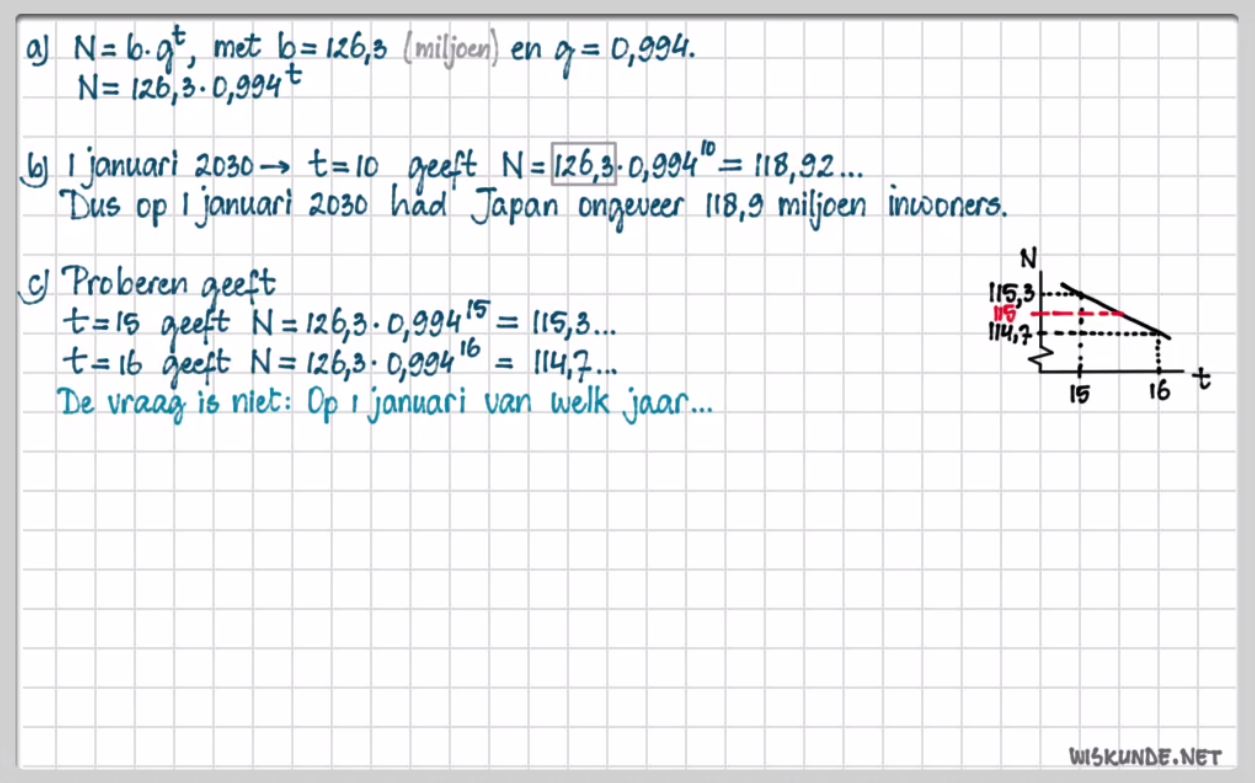 a) N = b · gᵗ, met b = 126,3 (miljoen) en g = 0,994.
N = 126,3 · 0,994ᵗ
b) 1 januari 2030 → t = 10 geeft N = 126,3 · 0,994¹⁰ = 118,92...
Dus op 1 januari 2030 had Japan ongeveer 118,9 miljoen inwoners.
c) Proberen geeft
t = 15 geeft N = 126,3 · 0,994¹⁵ = 115,3...
t = 16 geeft N = 126,3 · 0,994¹⁶ = 114,7...
De vraag is niet: Op 1 januari van welk jaar...
N
115,3
115
114,7
15 16 t
WISKUNDE.NET